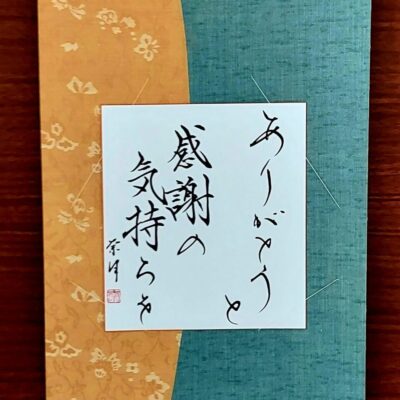 ありがとうと
感謝の
気持ちを